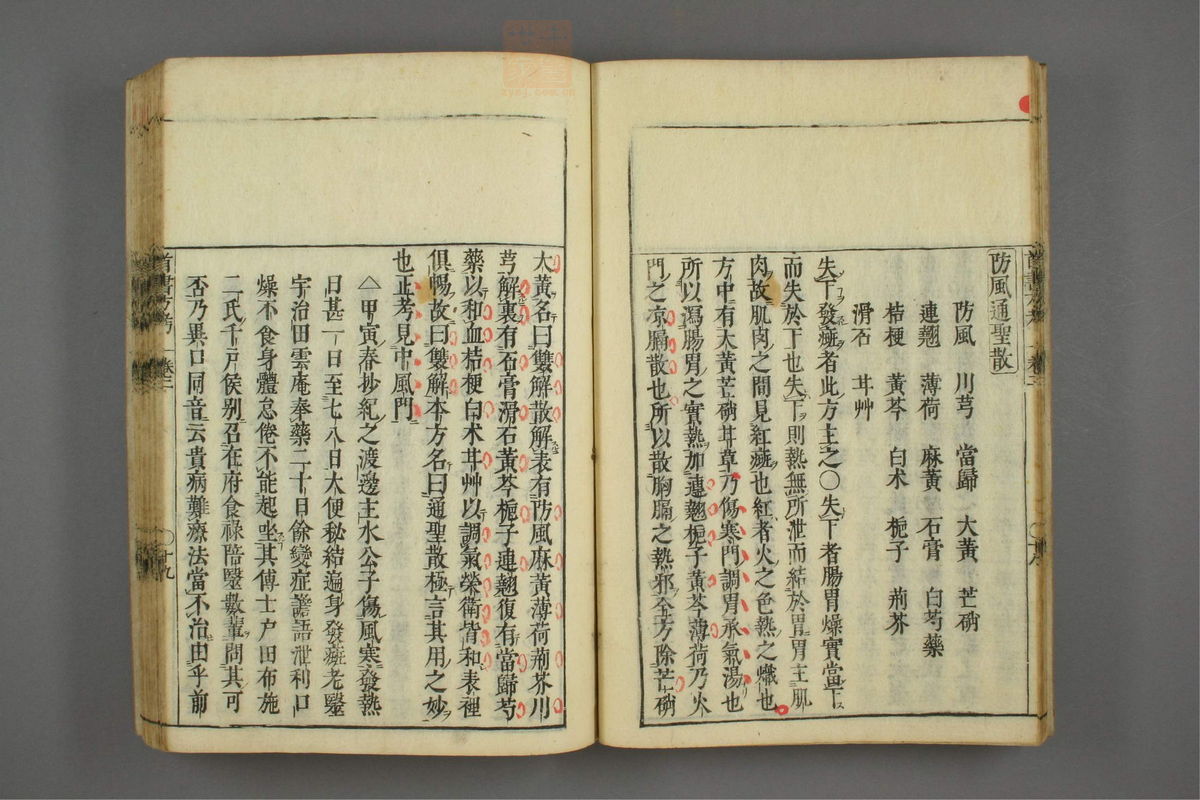 防風通聖散
防風 川芎 當歸 大黃 芒硝
連翹 薄荷 麻黃 石膏 白芍藥
桔梗 黃芩 白术 梔子 荊芥
滑石 甘艸
失下發癍者此方主之○失下者腸胃燥實當下
而失於下也失下則熱無所泄而結於胃胃主肌
肉故肌肉之間見紅癍也紅者火之色熱之熾也
方中有大黃芒硝甘草乃傷寒門調胃承氣湯也
所以瀉腸胃之實熱加連翹梔子黃芩薄荷乃火
門之凉膈散也所以散胸膈之熱邪全方除芒硝
大黃名曰雙解散解表有防風麻黃薄荷荊芥川
芎解裏有石膏滑石黃芩梔子連翹復有當歸芍
藥以和血桔梗白术甘艸以調氣榮衛皆和表裡
俱暢故曰雙解本方名曰通聖散極言其用之妙
也正考見中風門
△甲寅春抄紀之渡邊主水公子傷風寒發熱
日甚一日至七八日大便秘結遍身發癍老醫
宇治田雲庵奉藥二十日餘變症譫語泄利口
燥不食身體怠倦不能起坐其傅士戸田布施
二氏千戸侯別召在府食祿陪醫數輩問其可
否乃異口同音云貴病難療法當不治由乎前